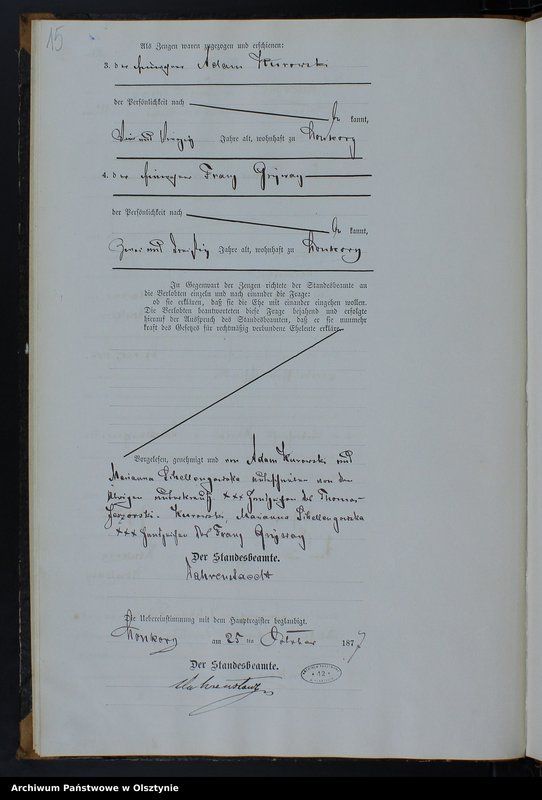 15
Als Zeugen waren zugezogen und erschienen:
3. der Einwohner Adam Kurowski
der Persönlichkeit nach
be kannt,
Vier und Vierzig Jahre alt, wohnhaft zu Konkorz
4. der Einwohner Franz Gryway
der Persönlichkeit nach
be kannt,
Zwei und dreißig Jahre alt, wohnhaft zu Konkorz
In Gegenwart der Zeugen richtete der Standesbeamte an
die Verlobten einzeln und nach einander die Frage:
ob sie erklären, daß sie die Ehe mit einander eingehen wollen.
Die Verlobten beantworteten diese Frage bejahend und erfolgte
hierauf der Ausspruch des Standesbeamten, daß er sie nunmehr
kraft des Gesetzes für rechtmäßig verbundene Eheleute erkläre.
Vorgelesen, genehmigt und von Adam Kurowski und
Marianna unterschrieben von den
Übrigen unterkreuzt +++ Handzeichen des Thomas
Kurowski, Marianna
+++ Handzeichen des Franz Gryway
Der Standesbeamte.
Die Uebereinstimmung mit dem Hauptregister beglaubigt.
Konkorz am 25 ten Oktober 1877
Der Standesbeamte.
12
Archiwum Państwowe w Olsztynie